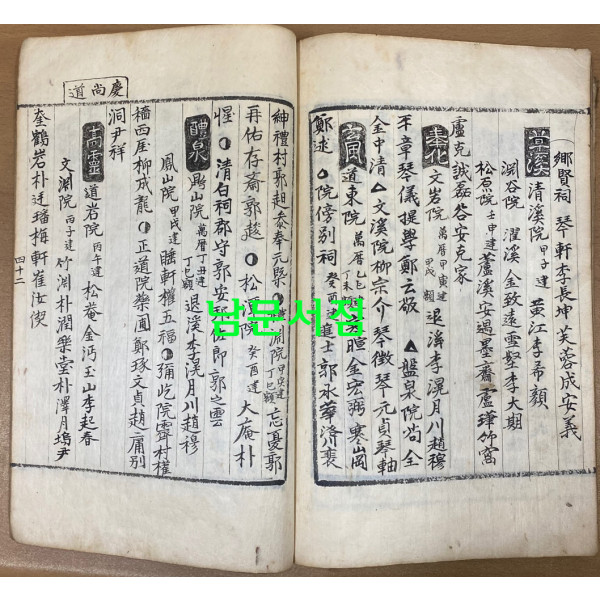 鄉賢祠 琴軒李長坤 芙蓉成安義
草溪 清溪院 甲子建 黄江李希顔
淵谷院 濯溪金致遠 雪壑李大期
松原院 壬申建 蘆溪安遇 墨齋盧瑾 竹窩
盧克誠 磊谷安克家
奉化 文岩院 萬曆甲寅建 甲戌額 退溪李滉 月川趙穆
平章琴儀 提學鄭云敬 ▲盤泉院 尚全
金中清 ▲文溪院 柳宗介 琴徽 琴元貞 琴軸
玄風 道東院 萬曆乙巳 丁未 暄 金宏弼 寒岡
鄭逑 院傍別祠 癸酉建 進士郭永華 洛川裵
紳 禮村郭䞭 泰 奉元 淵院 甲戌建 丁巳額 忘憂郭
再佑 存齋郭䞭 ●松 院 癸酉建 大庵朴
惺 ●清白祠 郡守郭安 佐郎郭之雲
醴泉 鼎山院 萬曆丁丑建 丁巳額 退溪李滉 月川趙穆
鳳山院 甲戌建 睡軒權五福 ●彌屹院 霽村權
檣 西厓柳成龍 ●正道院 藥圃鄭琢 文貞趙庸 別
洞尹祥
高靈 道岩院 丙午建 松菴金沔 玉山李起春
文淵院 丙子建 竹淵朴潤 樂堂朴澤 月塢尹
奎 鶴岩朴廷璠 梅軒崔汝
慶尚道
四十二
남문서점